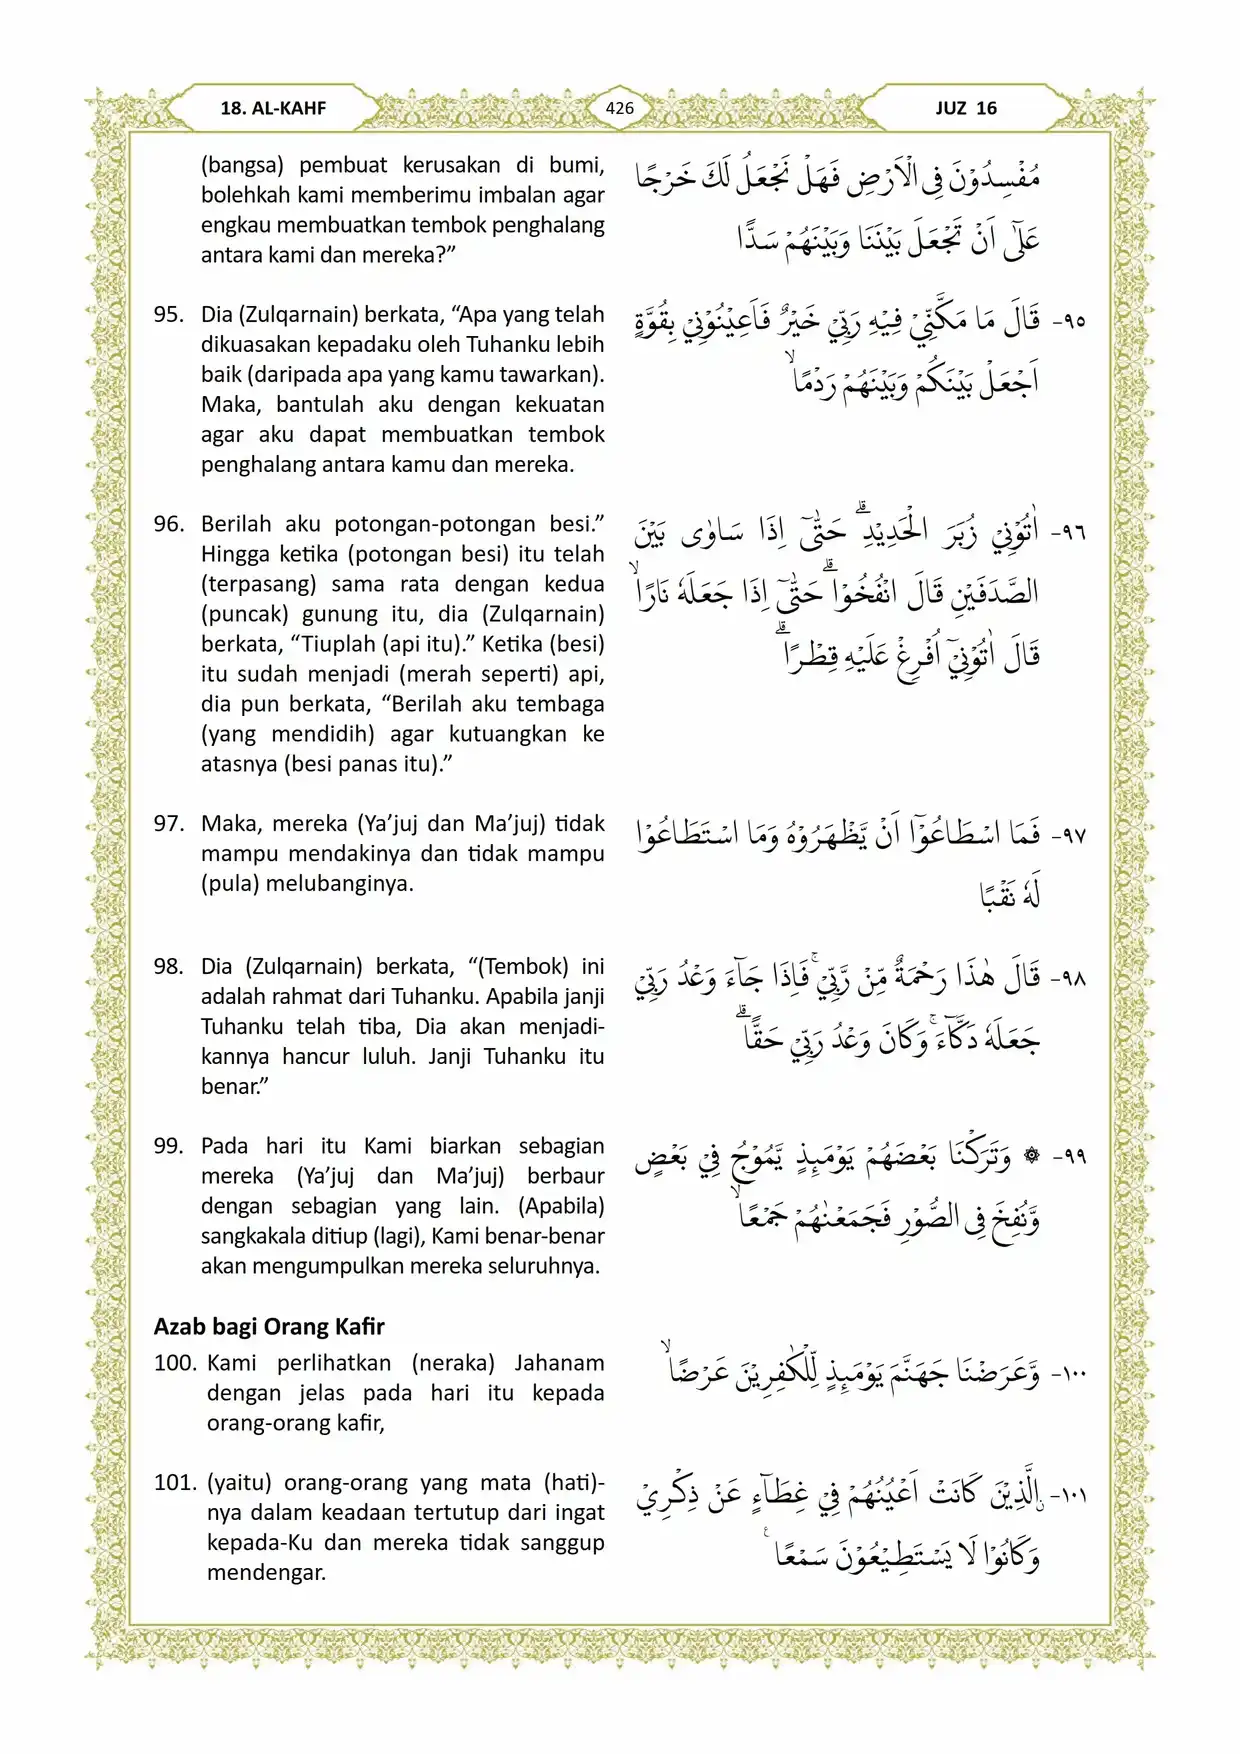 18. AL-KAHF
426
JUZ 16
(bangsa) pembuat kerusakan di bumi,
bolehkah kami memberimu imbalan agar
engkau membuatkan tembok penghalang
antara kami dan mereka?”
مُفْسِدُوْنَ فِى الْاَرْضِ فَهَلْ نَجْعَلُ لَكَ خَرْجًا
عَلٰٓى اَنْ تَجْعَلَ بَيْنَنَا وَبَيْنَهُمْ سَدًّا
95. Dia (Zulqarnain) berkata, “Apa yang telah
dikuasakan kepadaku oleh Tuhanku lebih
baik (daripada apa yang kamu tawarkan).
Maka, bantulah aku dengan kekuatan
agar aku dapat membuatkan tembok
penghalang antara kamu dan mereka.
٩٥- قَالَ مَا مَكَّنِّيْ فِيْهِ رَبِّيْ خَيْرٌ فَاَعِيْنُوْنِيْ بِقُوَّةٍ
اَجْعَلْ بَيْنَكُمْ وَبَيْنَهُمْ رَدْمًاۙ
96. Berilah aku potongan-potongan besi.”
Hingga ketika (potongan besi) itu telah
(terpasang) sama rata dengan kedua
(puncak) gunung itu, dia (Zulqarnain)
berkata, “Tiuplah (api itu).” Ketika (besi)
itu sudah menjadi (merah seperti) api,
dia pun berkata, “Berilah aku tembaga
(yang mendidih) agar kutuangkan ke
atasnya (besi panas itu).”
٩٦- اٰتُوْنِيْ زُبَرَ الْحَدِيْدِۗ حَتّٰىٓ اِذَا سَاوٰى بَيْنَ
الصَّدَفَيْنِ قَالَ انْفُخُوْاۗ حَتّٰىٓ اِذَا جَعَلَهٗ نَارًاۙ
قَالَ اٰتُوْنِيْٓ اُفْرِغْ عَلَيْهِ قِطْرًاۗ
97. Maka, mereka (Ya’juj dan Ma’juj) tidak
mampu mendakinya dan tidak mampu
(pula) melubanginya.
٩٧- فَمَا اسْطَاعُوْٓا اَنْ يَّظْهَرُوْهُ وَمَا اسْتَطَاعُوْا
لَهٗ نَقْبًا
98. Dia (Zulqarnain) berkata, “(Tembok) ini
adalah rahmat dari Tuhanku. Apabila janji
Tuhanku telah tiba, Dia akan menjadi-
kannya hancur luluh. Janji Tuhanku itu
benar.”
٩٨- قَالَ هٰذَا رَحْمَةٌ مِّنْ رَّبِّيْۚ فَاِذَا جَاۤءَ وَعْدُ رَبِّيْ
جَعَلَهٗ دَكَّاۤءَۚ وَكَانَ وَعْدُ رَبِّيْ حَقًّاۗ
99. Pada hari itu Kami biarkan sebagian
mereka (Ya’juj dan Ma’juj) berbaur
dengan sebagian yang lain. (Apabila)
sangkakala ditiup (lagi), Kami benar-benar
akan mengumpulkan mereka seluruhnya.
٩٩- ۞ وَتَرَكْنَا بَعْضَهُمْ يَوْمَىِٕذٍ يَّمُوْجُ فِيْ بَعْضٍ
وَّنُفِخَ فِى الصُّوْرِ فَجَمَعْنٰهُمْ جَمْعًاۙ
Azab bagi Orang Kafir
100. Kami perlihatkan (neraka) Jahanam
dengan jelas pada hari itu kepada
orang-orang kafir,
١٠٠- وَّعَرَضْنَا جَهَنَّمَ يَوْمَىِٕذٍ لِّلْكٰفِرِيْنَ عَرْضًاۙ
101. (yaitu) orang-orang yang mata (hati)-
nya dalam keadaan tertutup dari ingat
kepada-Ku dan mereka tidak sanggup
mendengar.
١٠١- ۨالَّذِيْنَ كَانَتْ اَعْيُنُهُمْ فِيْ غِطَاۤءٍ عَنْ ذِكْرِيْ
وَكَانُوْا لَا يَسْتَطِيْعُوْنَ سَمْعًا ࣖ